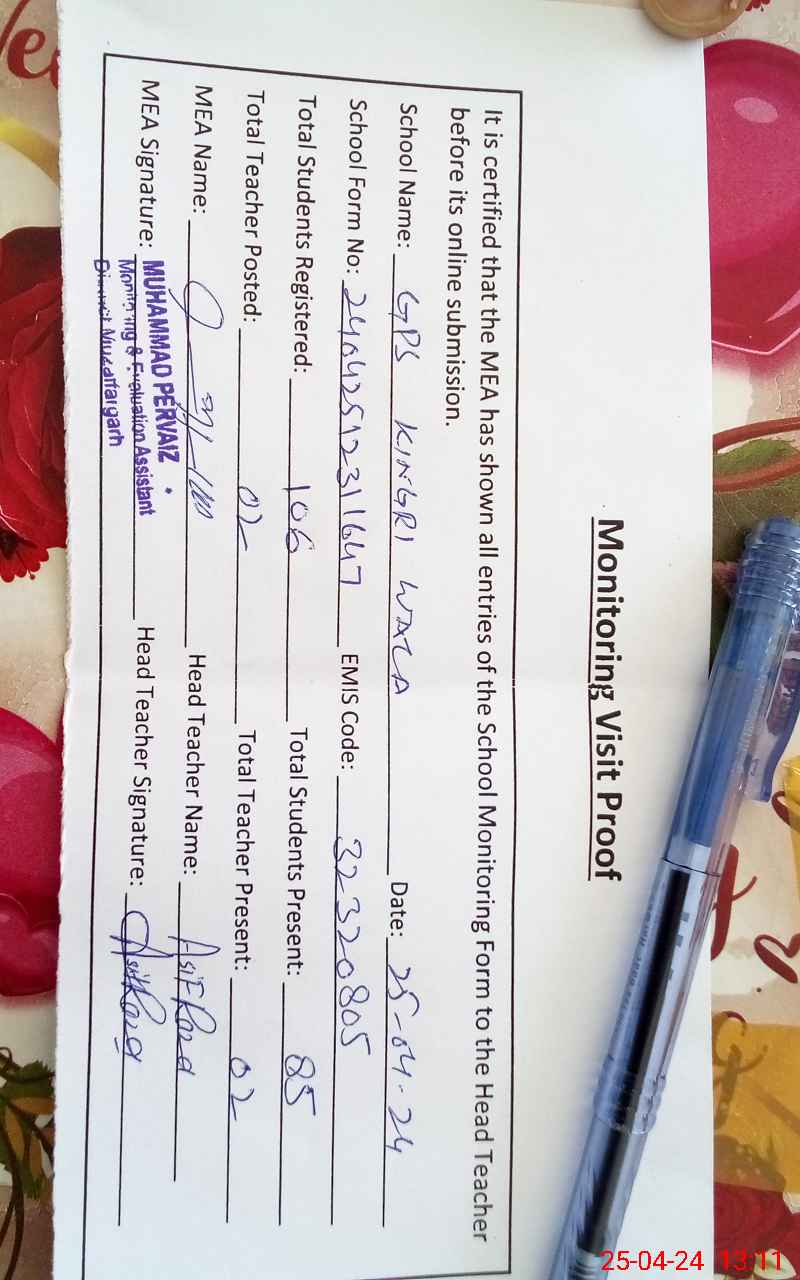 Monitoring Visit Proof
It is certified that the MEA has shown all entries of the School Monitoring Form to the Head Teacher
before its online submission.
School Name: GPS KINGRI WALA Date: 25-04-24
School Form No: 24042512311647 EMIS Code: 32320805
Total Students Registered: 106 Total Students Present: 85
Total Teacher Posted: 02 Total Teacher Present: 02
MEA Name: Head Teacher Name: Asif Raza
MEA Signature: MUHAMMAD PERVAIZ Head Teacher Signature: Asif Raza
Monitoring & Evaluation Assistant
District Muzaffargarh
25-04-24 13:11